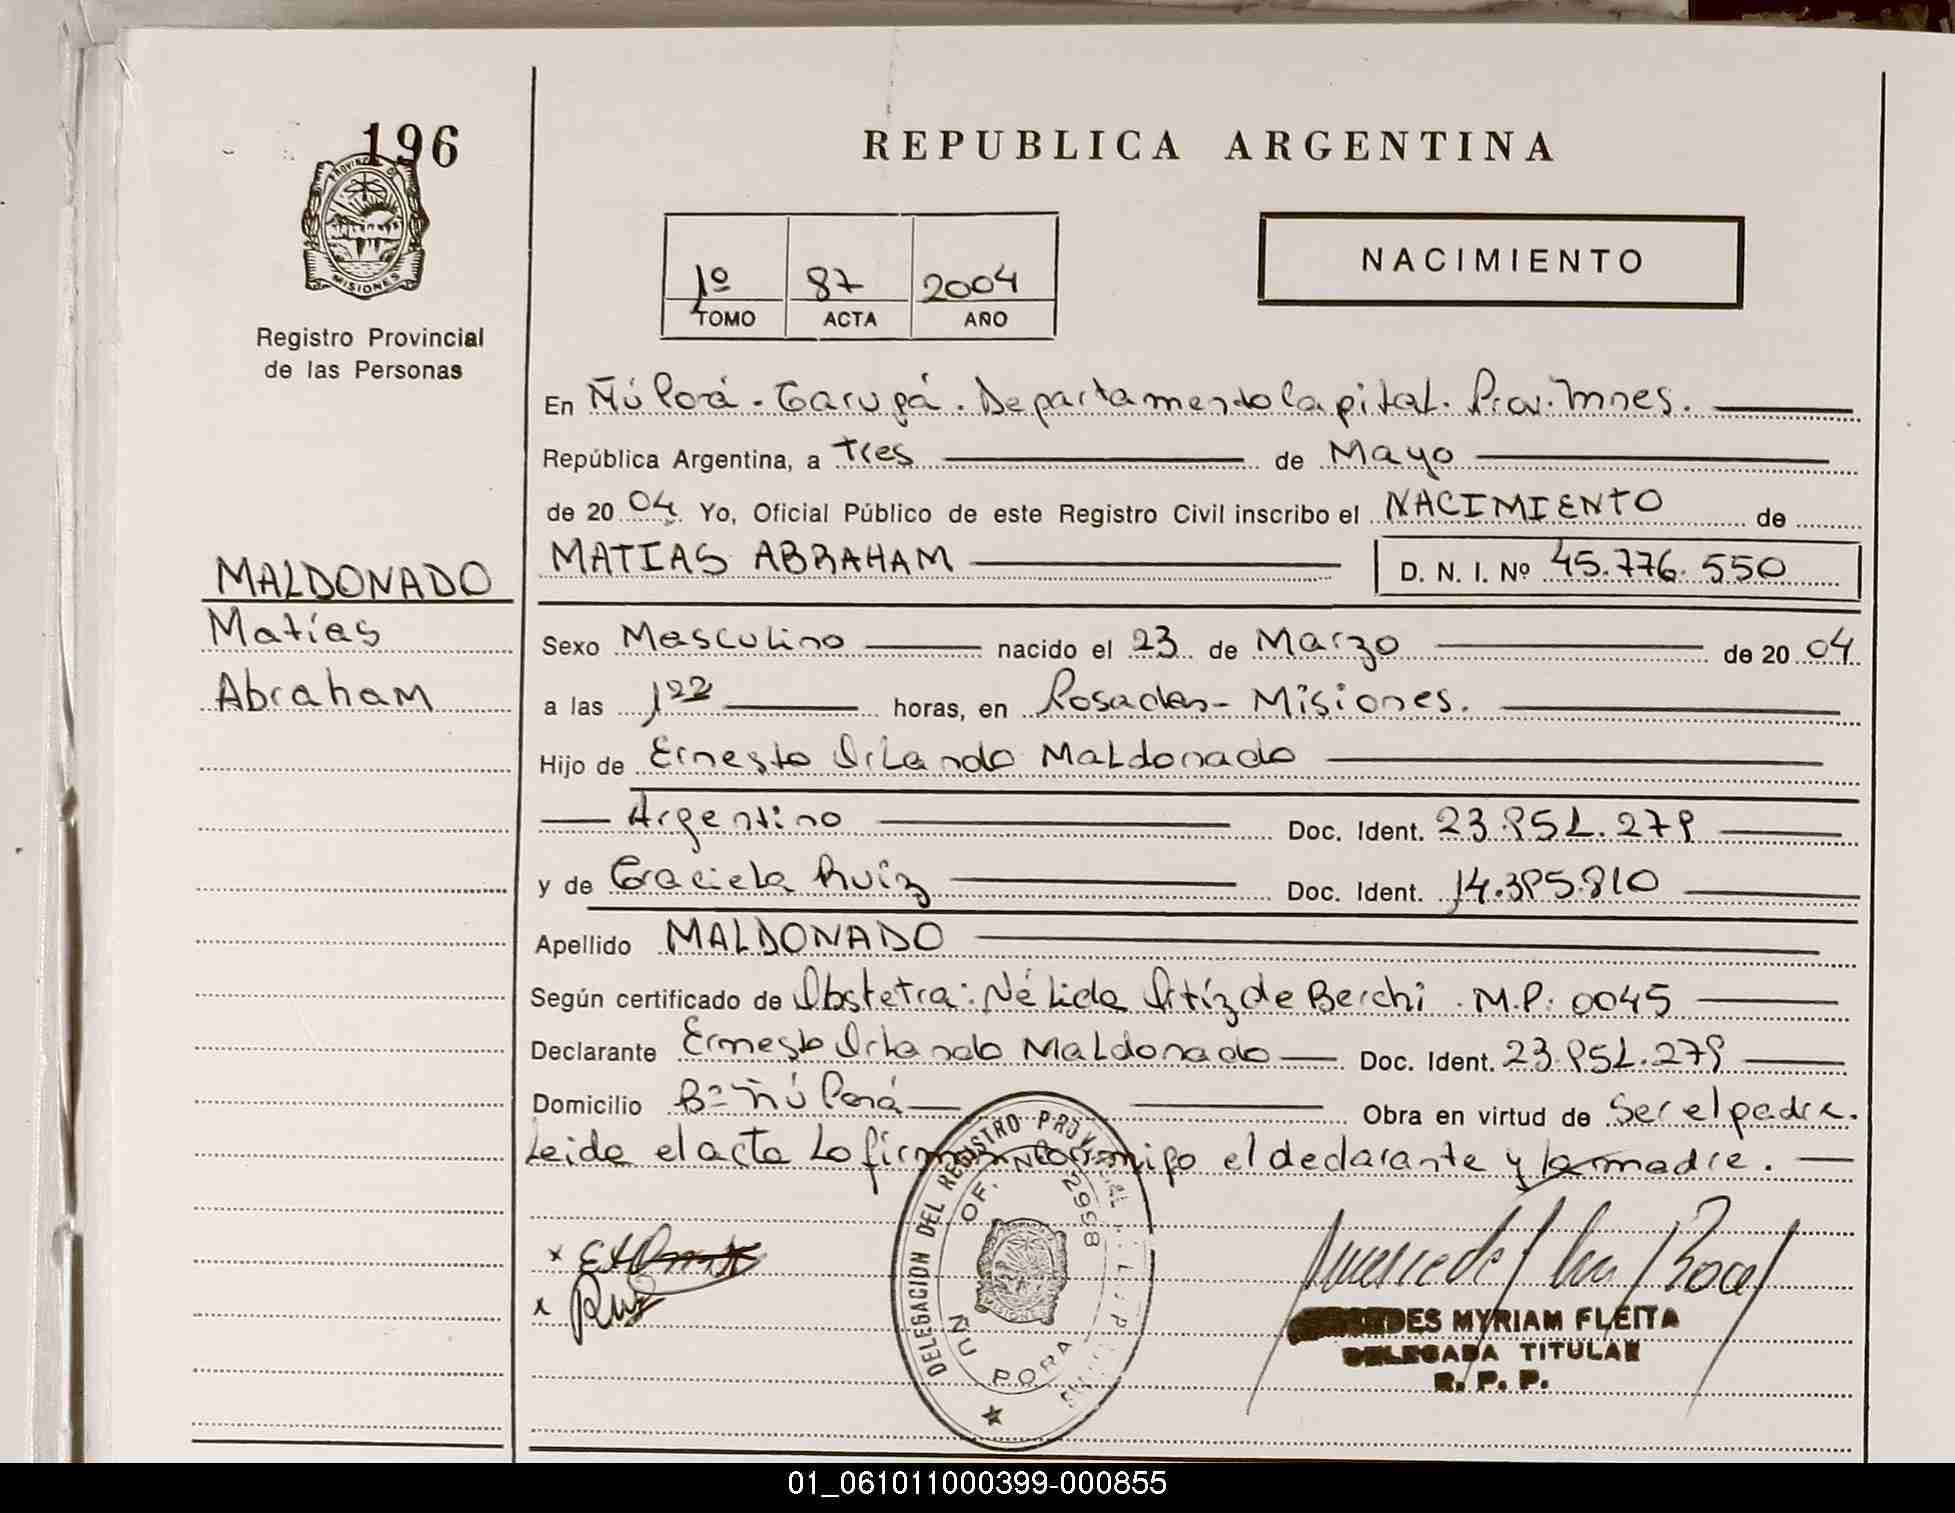 196
PROVINCIA DE
MISIONES
Registro Provincial
de las Personas
REPUBLICA ARGENTINA
1º 87 2004
TOMO ACTA AÑO
NACIMIENTO
En Ñú Porá. Garupá. Departamento Capital. Prov. Mnes.
República Argentina, a Tres de Mayo
de 20 04 Yo, Oficial Público de este Registro Civil inscribo el NACIMIENTO de
MATIAS ABRAHAM D. N. I. Nº 45.776.550
MALDONADO
Matías
Abraham
Sexo Masculino nacido el 23 de Marzo de 20 04
a las 1²² horas, en Posadas - Misiones.
Hijo de Ernesto Orlando Maldonado
Argentino Doc. Ident. 23.951.279
y de Graciela Ruiz Doc. Ident. 14.395.810
Apellido MALDONADO
Según certificado de Obstetra: Nélida Ortíz de Berchi. M.P: 0045
Declarante Ernesto Orlando Maldonado Doc. Ident. 23.951.279
Domicilio Bº Ñú Porá Obra en virtud de Ser el padre.
Leida el acta lo firman conmigo el declarante y la madre.
DELEGACION DEL REGISTRO PROVINCIAL
OF. 2998
ÑU PORA
x
x Ruiz
MYRIAM FLEITA
DELEGADA TITULAR
R. P. P.
01_061011000399-000855